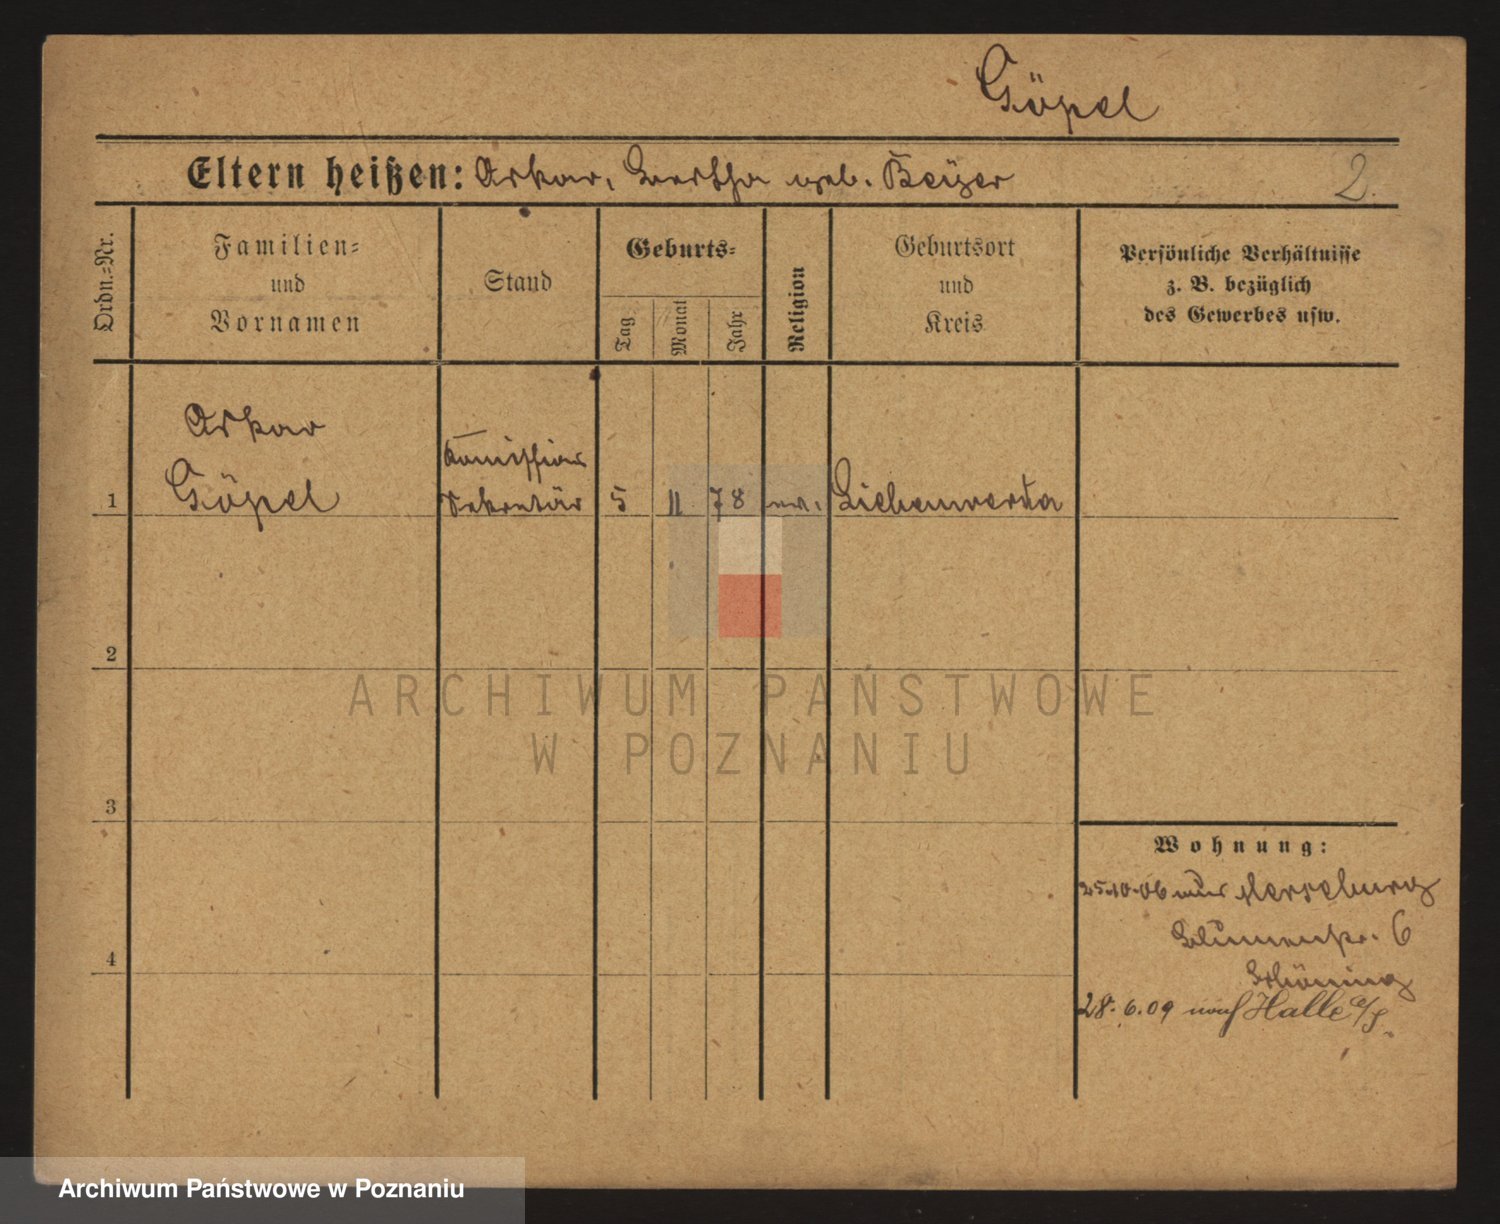 Göpel
Eltern heißen: Oskar, Bertha geb. Beÿer
2.
Ordn.=Nr.
Familien=
und
Vornamen
Stand
Geburts=
Tag
Monat
Jahr
Religion
Geburtsort
und
Kreis
Persönliche Verhältnisse
z. B. bezüglich
des Gewerbes usw.
Oskar
Göpel
Komissions
Sekretär
1
5
11
78
ev.
Liebenwerda
2
3
4
Wohnung:
25.10.06 aus Merseburg
Blumenstr. 6
28.6.09 nach Halle a/S.
ARCHIWUM PAŃSTWOWE
W POZNANIU
Archiwum Państwowe w Poznaniu